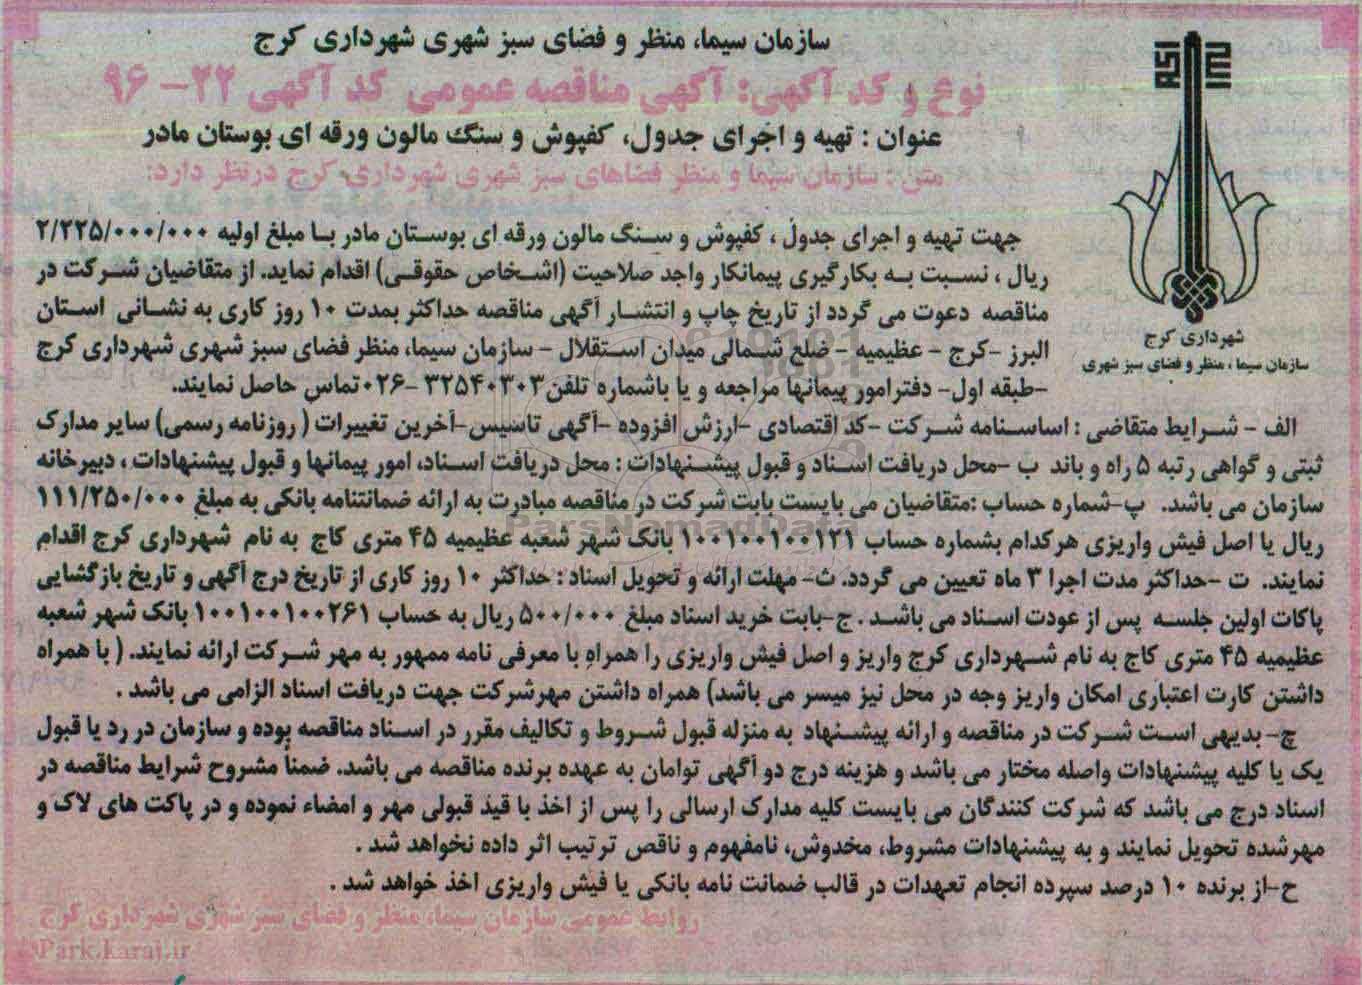 سازمان سیما، منظر و فضای سبز شهری شهرداری کرج
نوع و کد آگهی: آگهی مناقصه عمومی کد آگهی ۲۲- ۹۶
عنوان : تهیه و اجرای جدول، کفپوش و سنگ مالون ورقه ای بوستان مادر
متن : سازمان سیما و منظر فضاهای سبز شهری شهرداری کرج درنظر دارد:
جهت تهیه و اجرای جدول ، کفپوش و سنگ مالون ورقه ای بوستان مادر با مبلغ اولیه ۲/۲۲۵/۰۰۰/۰۰۰
ریال ، نسبت به بکارگیری پیمانکار واجد صلاحیت (اشخاص حقوقی) اقدام نماید. از متقاضیان شرکت در
مناقصه دعوت می گردد از تاریخ چاپ و انتشار آگهی مناقصه حداکثر بمدت ۱۰ روز کاری به نشانی استان
البرز -کرج - عظیمیه - ضلع شمالی میدان استقلال - سازمان سیما، منظر فضای سبز شهری شهرداری کرج
-طبقه اول- دفترامور پیمانها مراجعه و یا باشماره تلفن ۳۲۵۴۰۳۰۳ -۰۲۶تماس حاصل نمایند.
الف - شرایط متقاضی : اساسنامه شرکت -کد اقتصادی -ارزش افزوده -آگهی تاسیس-آخرین تغییرات ( روزنامه رسمی) سایر مدارک
ثبتی و گواهی رتبه ۵ راه و باند ب -محل دریافت اسناد و قبول پیشنهادات : محل دریافت اسناد، امور پیمانها و قبول پیشنهادات ، دبیرخانه
سازمان می باشد. پ-شماره حساب :متقاضیان می بایست بابت شرکت در مناقصه مبادرت به ارائه ضمانتنامه بانکی به مبلغ ۱۱۱/۲۵۰/۰۰۰
ریال یا اصل فیش واریزی هرکدام بشماره حساب ۱۰۰۱۰۰۱۰۰۱۲۱ بانک شهر شعبه عظیمیه ۴۵ متری کاج به نام شهرداری کرج اقدام
نمایند. ت -حداکثر مدت اجرا ۳ ماه تعیین می گردد. ث- مهلت ارائه و تحویل اسناد : حداکثر ۱۰ روز کاری از تاریخ درج آگهی و تاریخ بازگشایی
پاکات اولین جلسه پس از عودت اسناد می باشد . ج-بابت خرید اسناد مبلغ ۵۰۰/۰۰۰ ریال به حساب ۱۰۰۱۰۰۱۰۰۲۶۱ بانک شهر شعبه
عظیمیه ۴۵ متری کاج به نام شهرداری کرج واریز و اصل فیش واریزی را همراه با معرفی نامه ممهور به مهر شرکت ارائه نمایند. ( با همراه
داشتن کارت اعتباری امکان واریز وجه در محل نیز میسر می باشد) همراه داشتن مهرشرکت جهت دریافت اسناد الزامی می باشد .
چ- بدیهی است شرکت در مناقصه و ارائه پیشنهاد به منزله قبول شروط و تکالیف مقرر در اسناد مناقصه بوده و سازمان در رد یا قبول
یک یا کلیه پیشنهادات واصله مختار می باشد و هزینه درج دو آگهی توامان به عهده برنده مناقصه می باشد. ضمناً مشروح شرایط مناقصه در
اسناد درج می باشد که شرکت کنندگان می بایست کلیه مدارک ارسالی را پس از اخذ با قید قبولی مهر و امضاء نموده و در پاکت های لاک و
مهرشده تحویل نمایند و به پیشنهادات مشروط، مخدوش، نامفهوم و ناقص ترتیب اثر داده نخواهد شد .
ح-از برنده ۱۰ درصد سپرده انجام تعهدات در قالب ضمانت نامه بانکی یا فیش واریزی اخذ خواهد شد .
روابط عمومی سازمان سیما، منظر و فضای سبز شهری شهرداری کرج
Park.karaj.ir
شهرداری کرج
سازمان سیما ، منظر و فضای سبز شهری
ParsNamadData